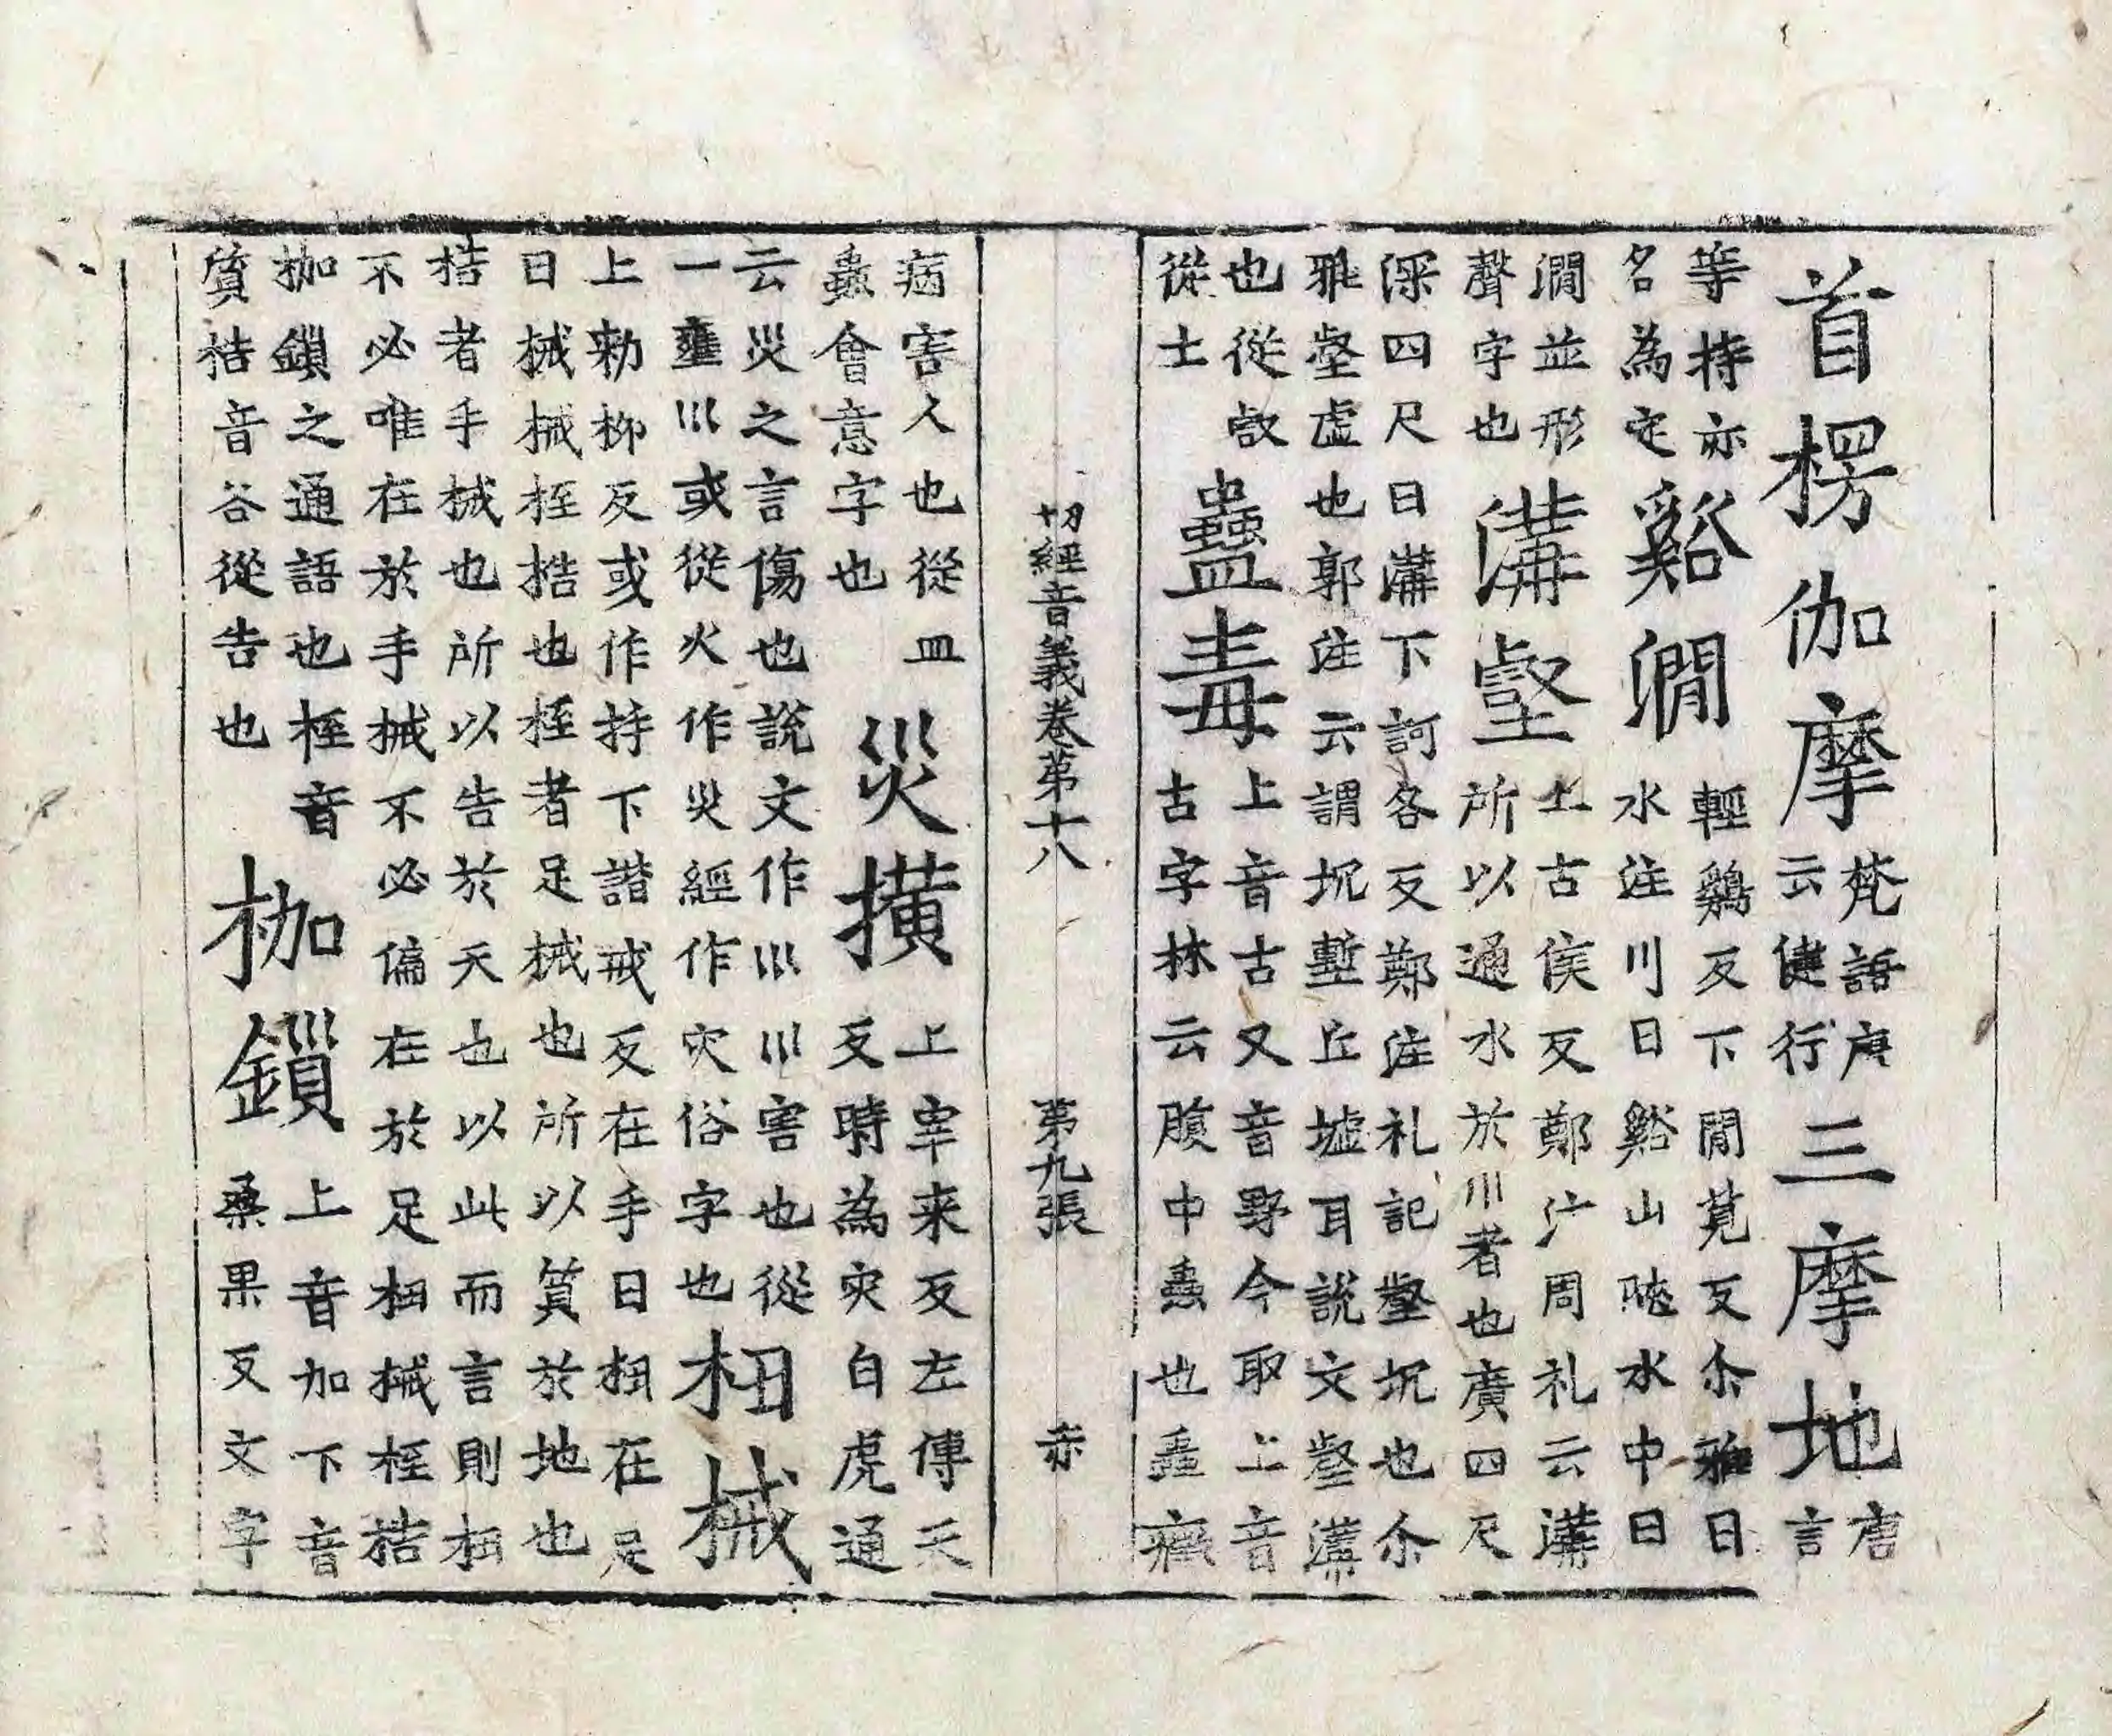 首楞伽摩梵語唐云健行三摩地唐言
等持亦名為定谿澗輕鷄反下閒莧反尒雅曰水注川曰谿山陜水中曰
澗並形聲字也溝壑上古侯反鄭注周礼云溝所以通水於巛者也廣四尺
深四尺曰溝下訶各反鄭注礼記壑坑也尒雅壑虛也郭注云謂坑壍丘墟耳說文壑溝
也從㕡從土蠱毒上音古又音野今取上音古字林云腹中蟲也蠱癥
切經音義卷第十八 第九張 赤
病害人也從皿蟲會意字也災撗上宰来反左傳天反時為灾白虎通
云災之言傷也說文作巛巛害也從一壅巛或從火作災經作灾俗字也杻械
上勑柳反或作杽下諧戒反在手曰杻在足曰械械桎梏也桎者足械也所以質於地也
梏者手械也所以告於天也以此而言則杻不必唯在於手械不必偏在於足杻械桎梏
枷鎖之通語也桎音質梏音谷從告也枷鎖上音加下音桒果反文字